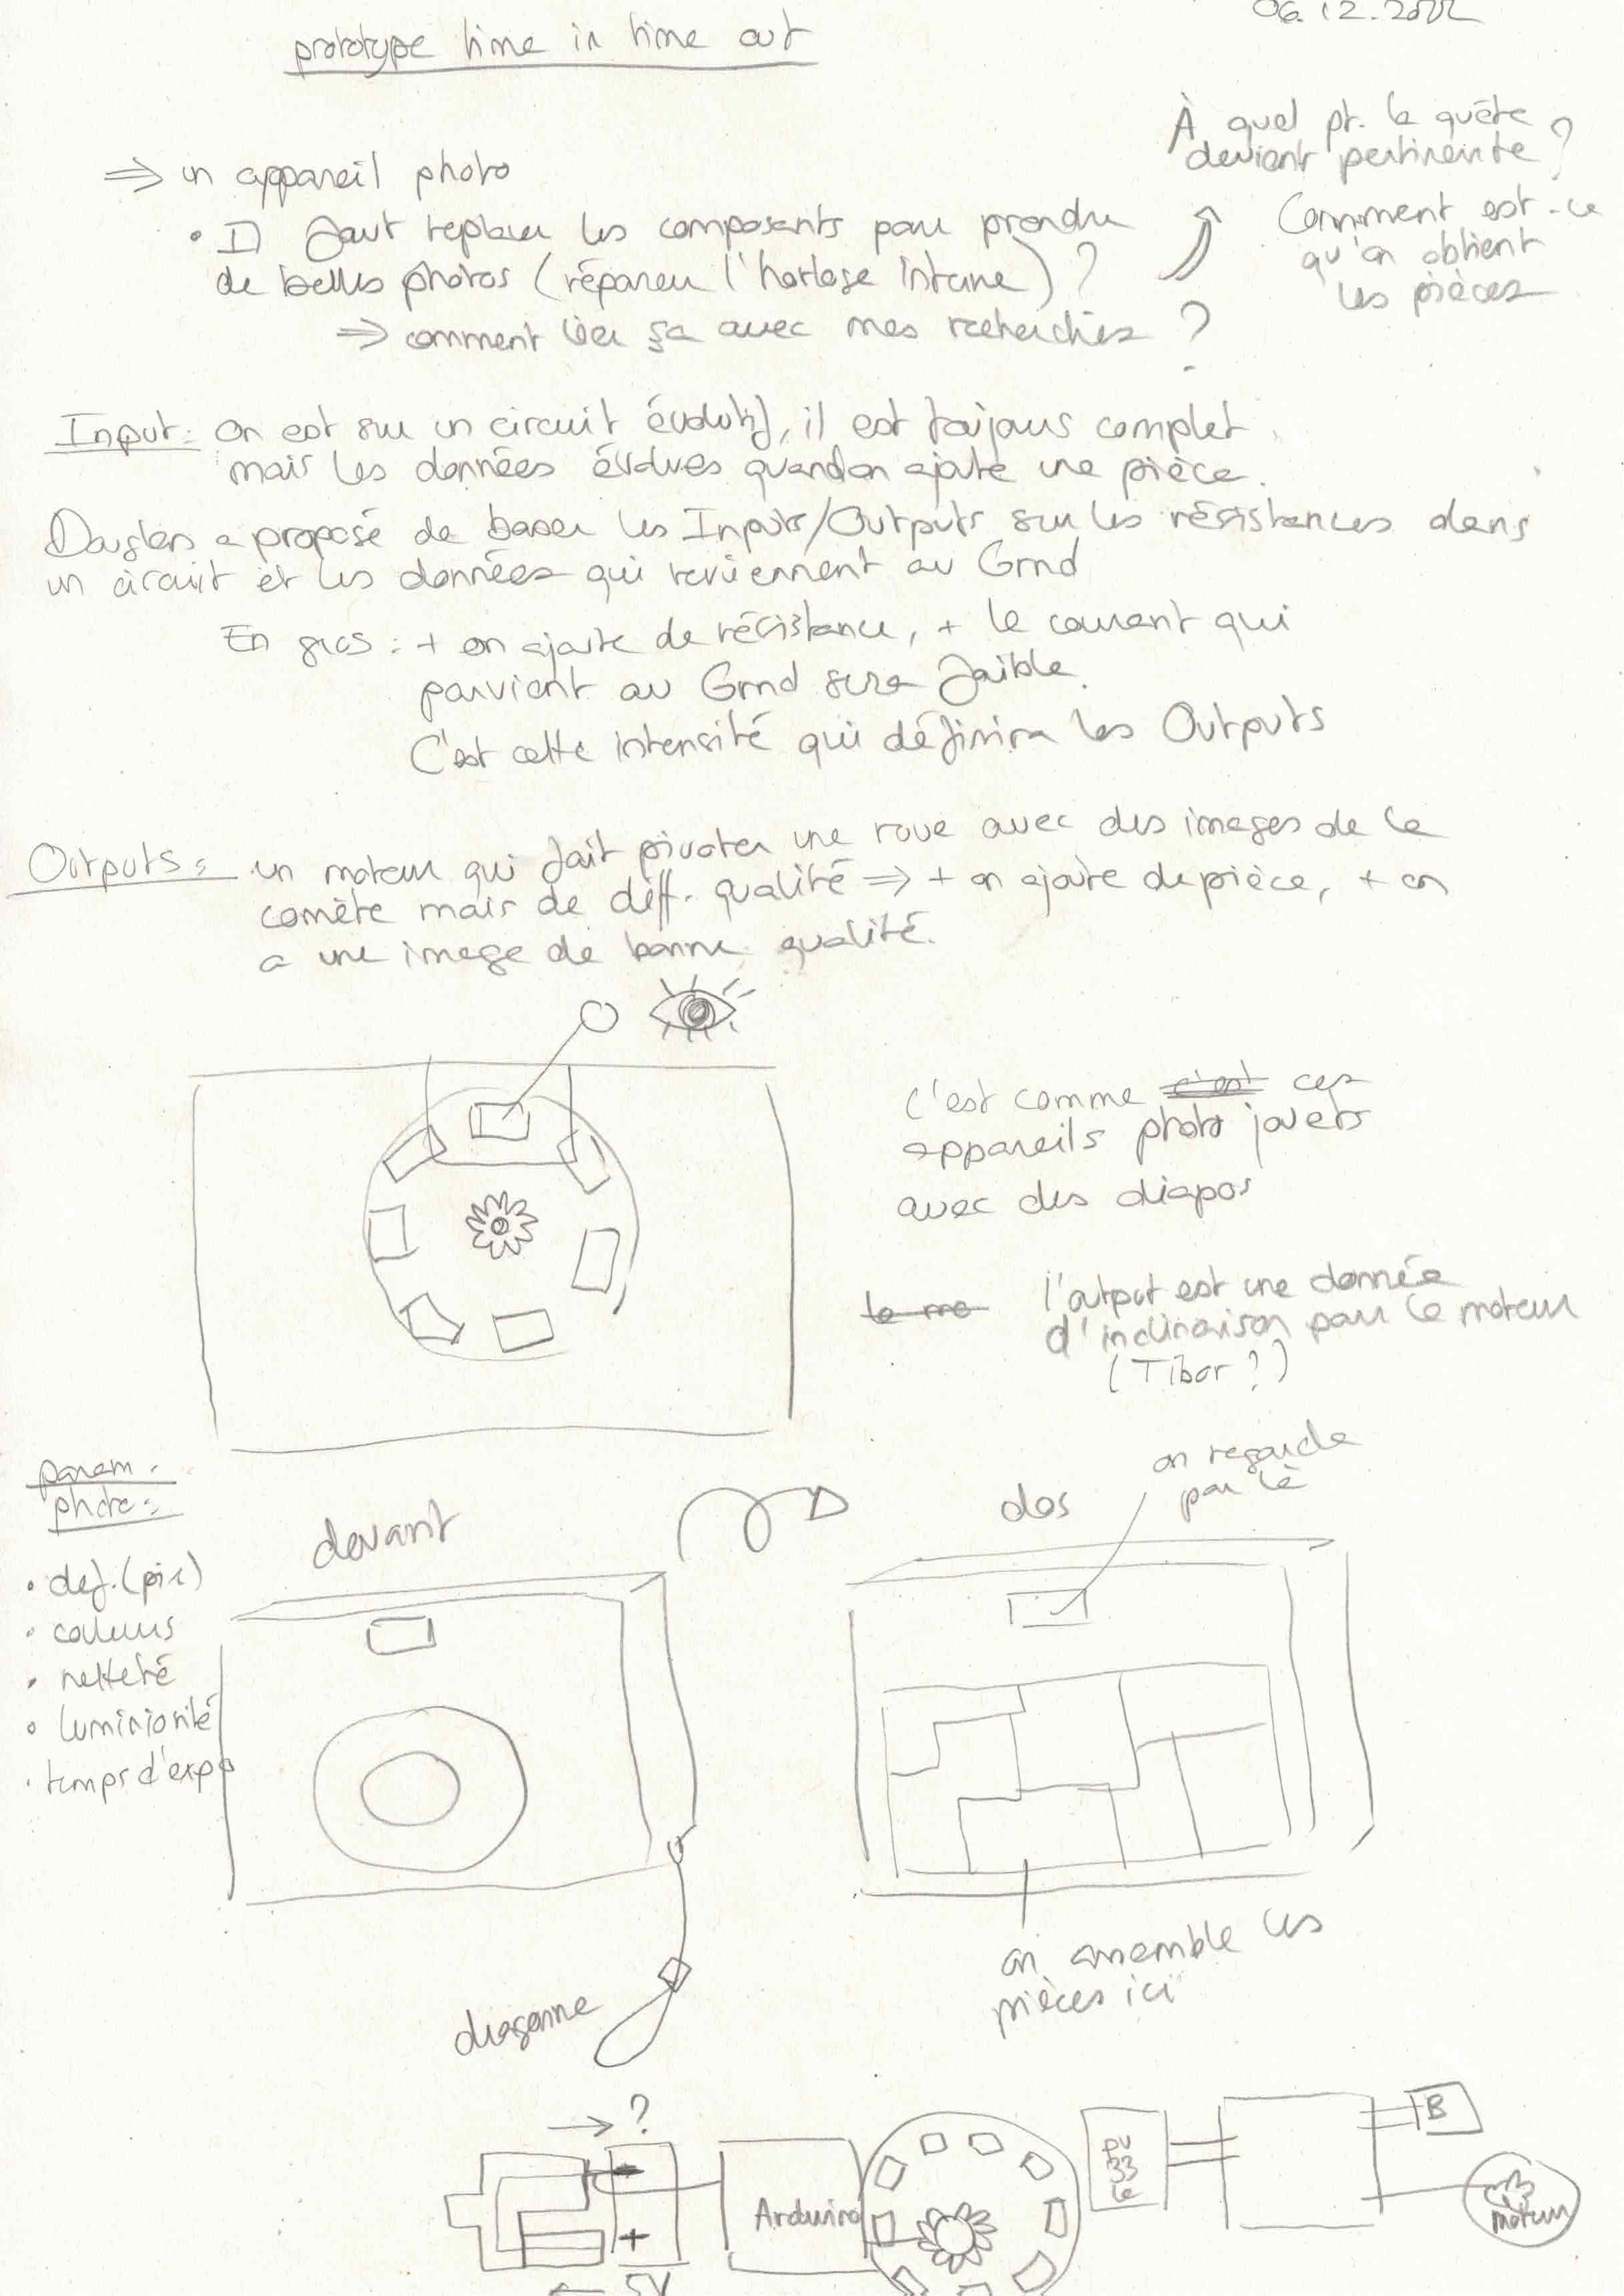 06.12.2022
prototype time in time out
À quel pt. la quête
devient pertinente ?
Comment est-ce
qu'on obtient
les pièces
⇒ un appareil photo
• Il faut replacer les composants pour prendre
de belles photos (réparer l'horloge interne) ?
⇒ comment lier ça avec mes recherches ?
Input: On est sur un circuit évolutif, il est toujours complet
mais les données évolues quand on ajoute une pièce.
Douglas a proposé de baser les Inputs/Outputs sur les résistances dans
un circuit et les données qui reviennent au Grnd
En gros : + on ajoute de résistance, + le courant qui
parvient au Grnd sera faible.
C'est cette intensité qui définira les Outputs
Outputs: un moteur qui fait pivoter une roue avec des images de la
comète mais de diff. qualité ⇒ + on ajoute de pièce, + on
a une image de bonne qualité.
C'est comme c'est ces
appareils photo jouets
avec des diapos
le mo l'output est une donnée
d'inclinaison pour le moteur
(Tibor ?)
param.
photo:
• def. (pix)
• couleurs
• netteté
• luminosité
• temps d'expo
devant
dos
on regarde
par là
dragonne
on assemble les
pièces ici
→ ?
+
← 5V
Arduino
puzzle
B
moteur